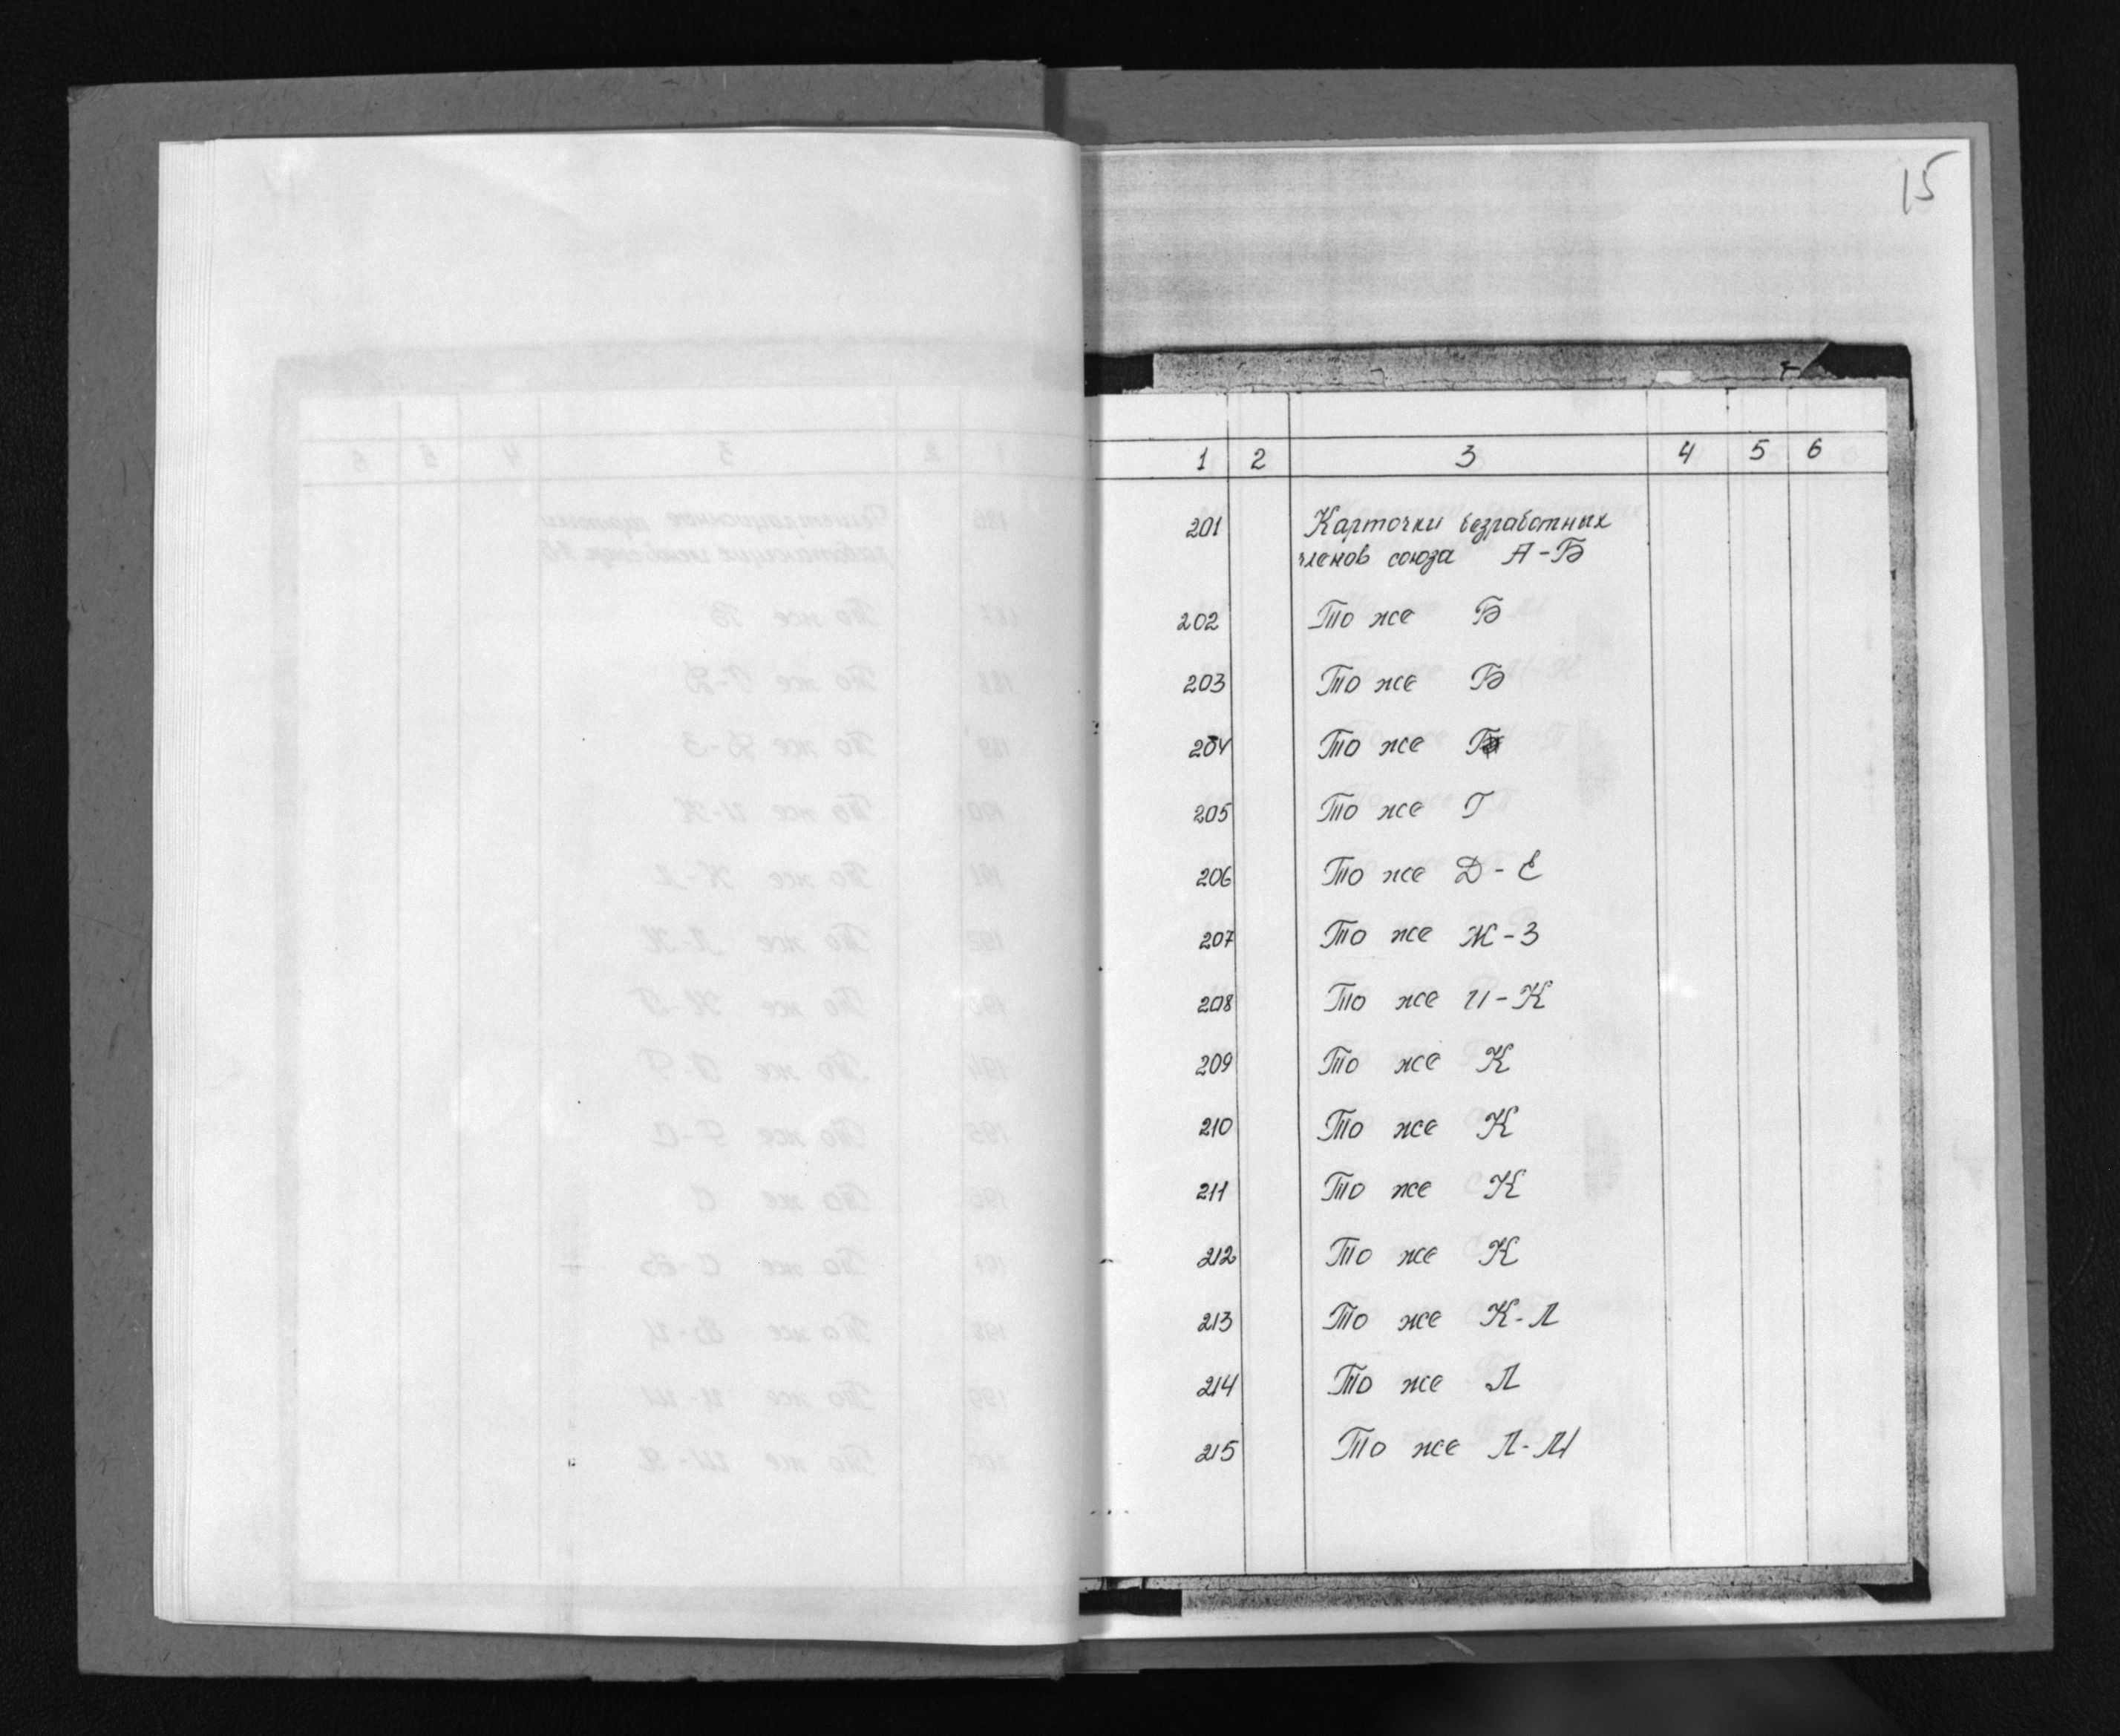 15
1 2 3 4 5 6
201 Карточки безработных
членов союза А-Б
202 То же Б
203 То же Б
204 То же
205 То же Г
206 То же Д-Е
207 То же Ж-З
208 То же И-К
209 То же К
210 То же К
211 То же К
212 То же К
213 То же К-Л
214 То же Л
215 То же Л-М